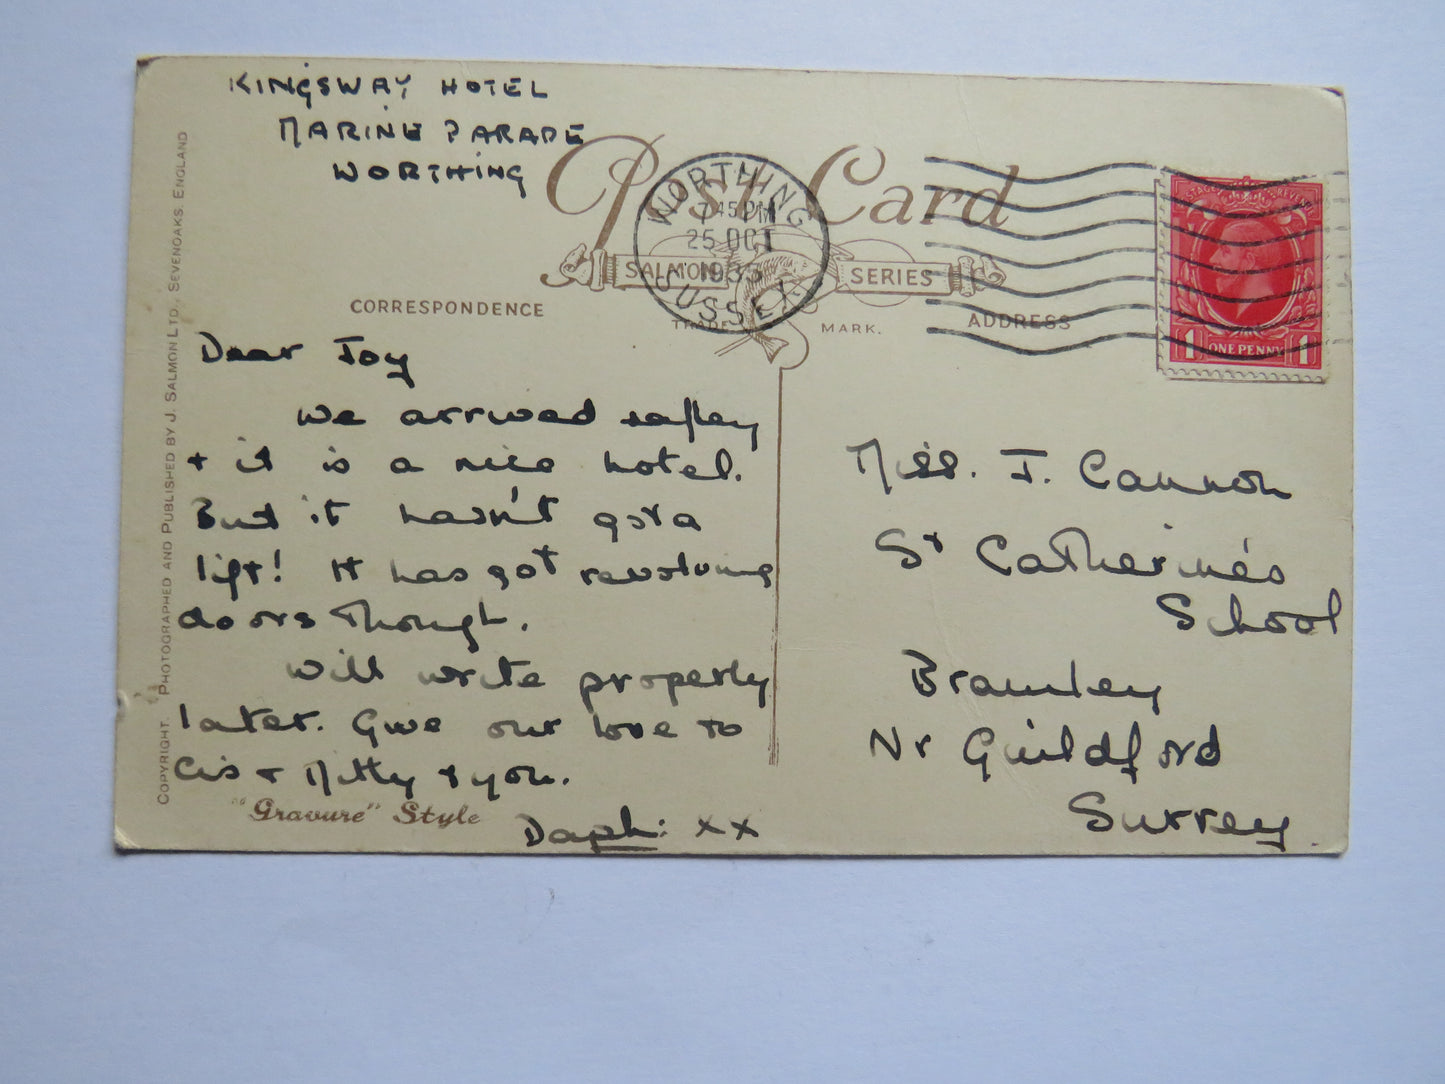 KINGSWAY HOTEL
MARINE PARADE
WORTHING
Post Card
WORTHING
7 45 PM
25 OCT
1935
SUSSEX
SALMON SERIES
TRADE MARK.
CORRESPONDENCE
ADDRESS
POSTAGE REVENUE
1 ONE PENNY 1
Dear Joy
We arrived safley
+ it is a nice hotel.
But it hasn't got a
lift! It has got revolving
doors though.
Will write properly
later. Give our love to
Cis + Mitty + you.
Daph: xx
Miss. J. Cannon
St Catherine's
School
Bramley
Nr Guildford
Surrey
"Gravure" Style
COPYRIGHT. PHOTOGRAPHED AND PUBLISHED BY J. SALMON LTD., SEVENOAKS. ENGLAND